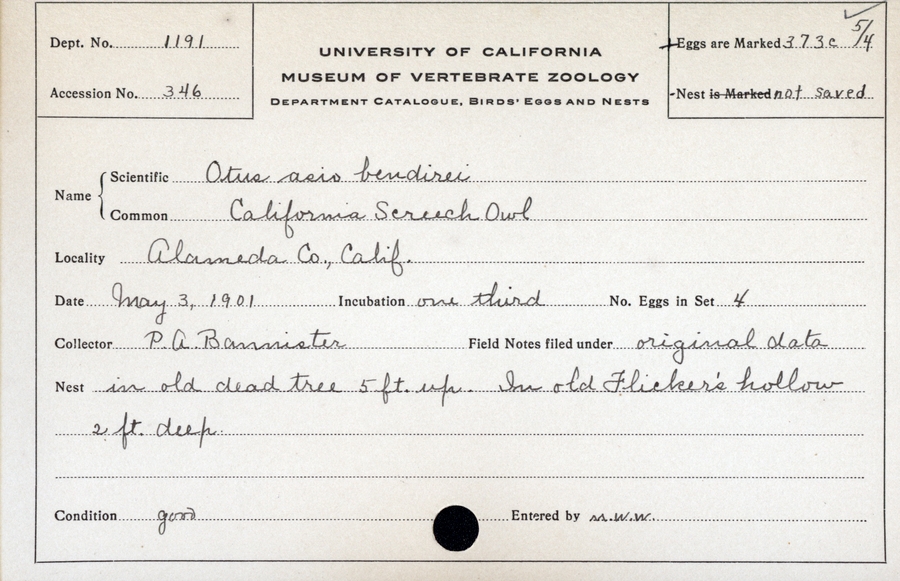 Dept. No. 1191
Accession No. 346
UNIVERSITY OF CALIFORNIA
MUSEUM OF VERTEBRATE ZOOLOGY
DEPARTMENT CATALOGUE, BIRDS' EGGS AND NESTS
Eggs are Marked 373c 5/4
Nest is Marked not saved
Name
Scientific Otus asio bendirei
Common California Screech Owl
Locality Alameda Co., Calif.
Date May 3, 1901 Incubation one third No. Eggs in Set 4
Collector P. A. Bannister Field Notes filed under original data
Nest in old dead tree 5 ft. up. In old Flicker's hollow
2 ft. deep.
Condition good Entered by M.W.W.